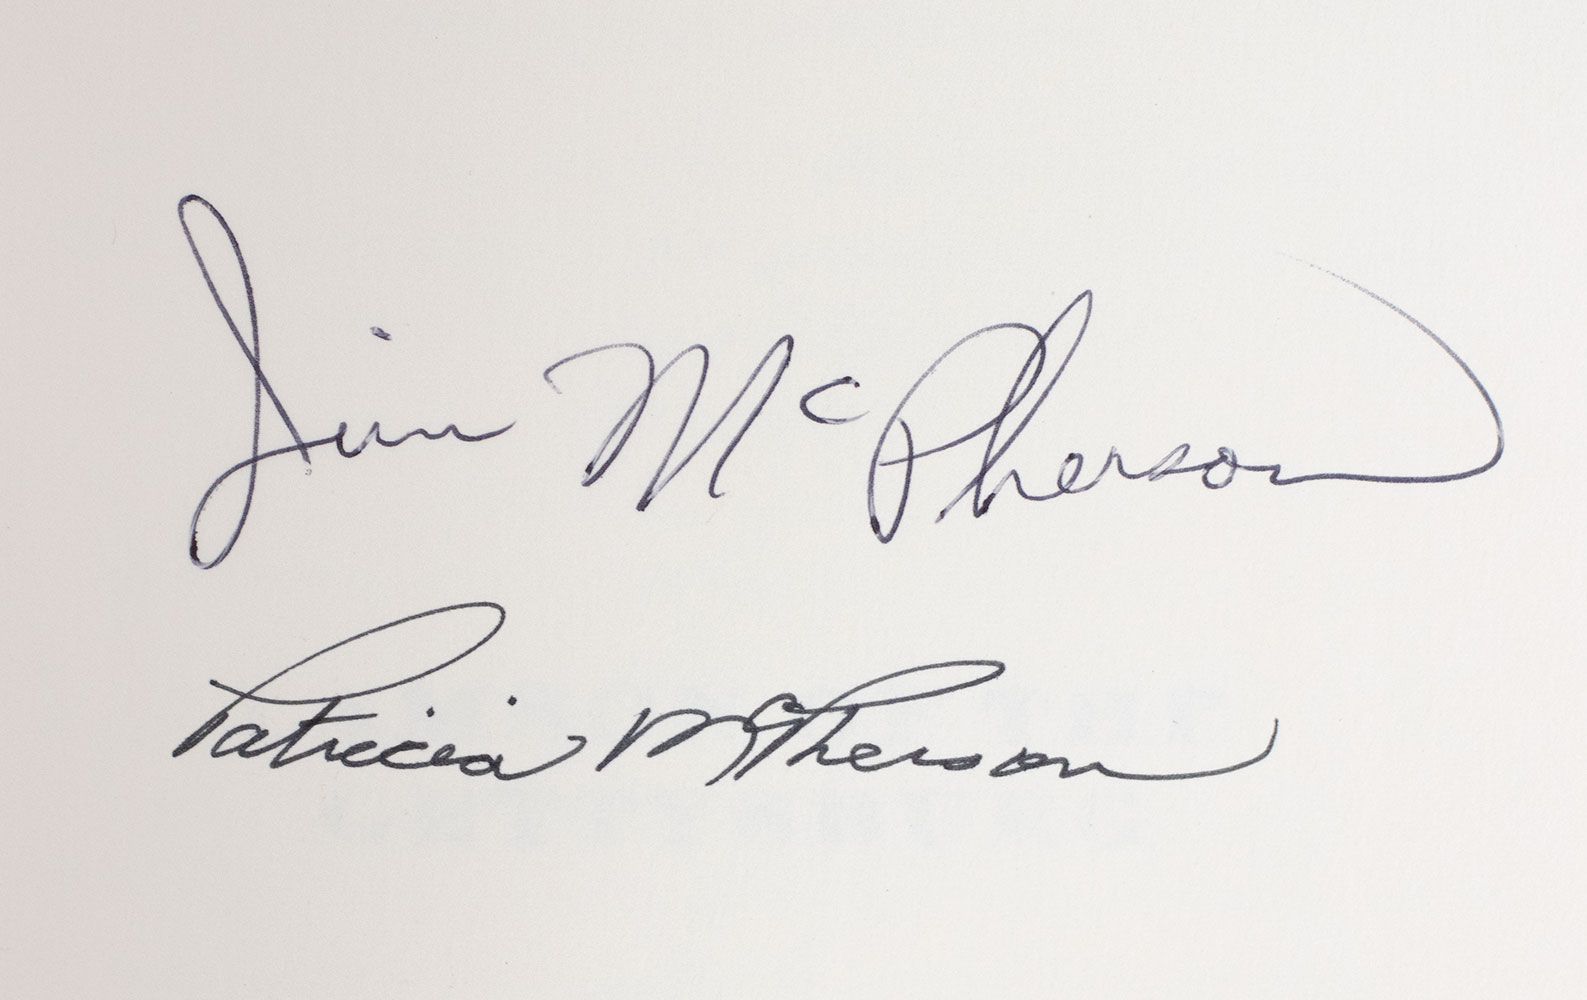 Jim McPherson
Patricia McPherson